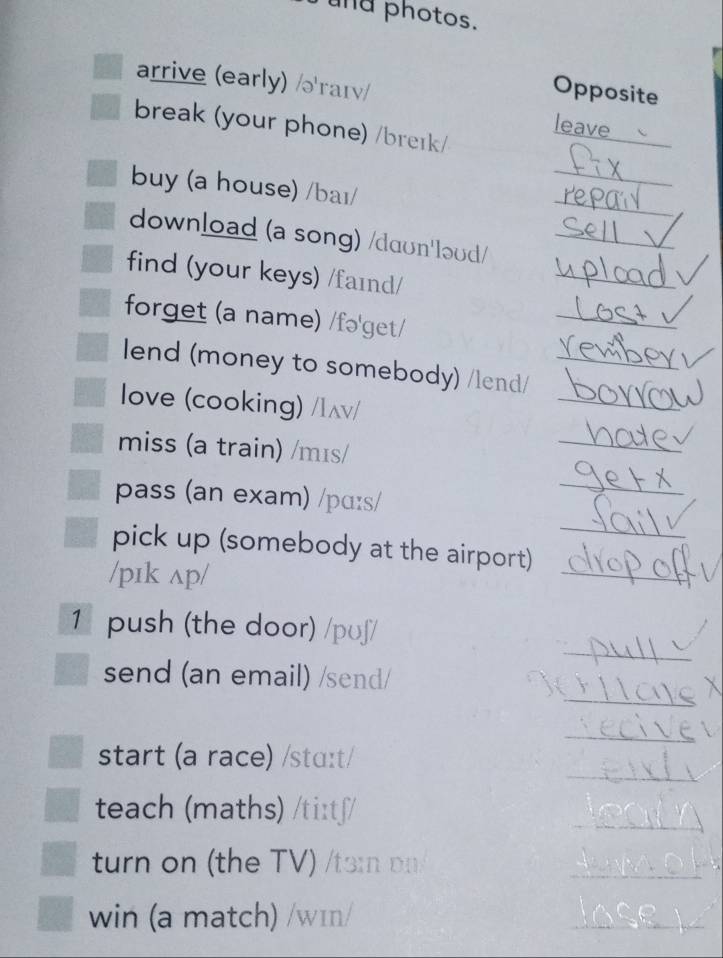 and photos.
Opposite
arrive (early) /ə'raɪv/ leave
break (your phone) /breɪk/ fix
repair
buy (a house) /baɪ/ sell
download (a song) /daʊn'ləʊd/ upload
find (your keys) /faɪnd/ Lost
forget (a name) /fə'get/ rember
lend (money to somebody) /lend/ borrow
love (cooking) /lʌv/ hate
miss (a train) /mɪs/ get
pass (an exam) /pɑːs/ fail
pick up (somebody at the airport) drop off
/pɪk ʌp/
1 push (the door) /pʊʃ/ pull
send (an email) /send/
recive
start (a race) /stɑːt/
teach (maths) /tiːtʃ/ learn
turn on (the TV) /tɜːn ɒn/ turn off
win (a match) /wɪn/ lose